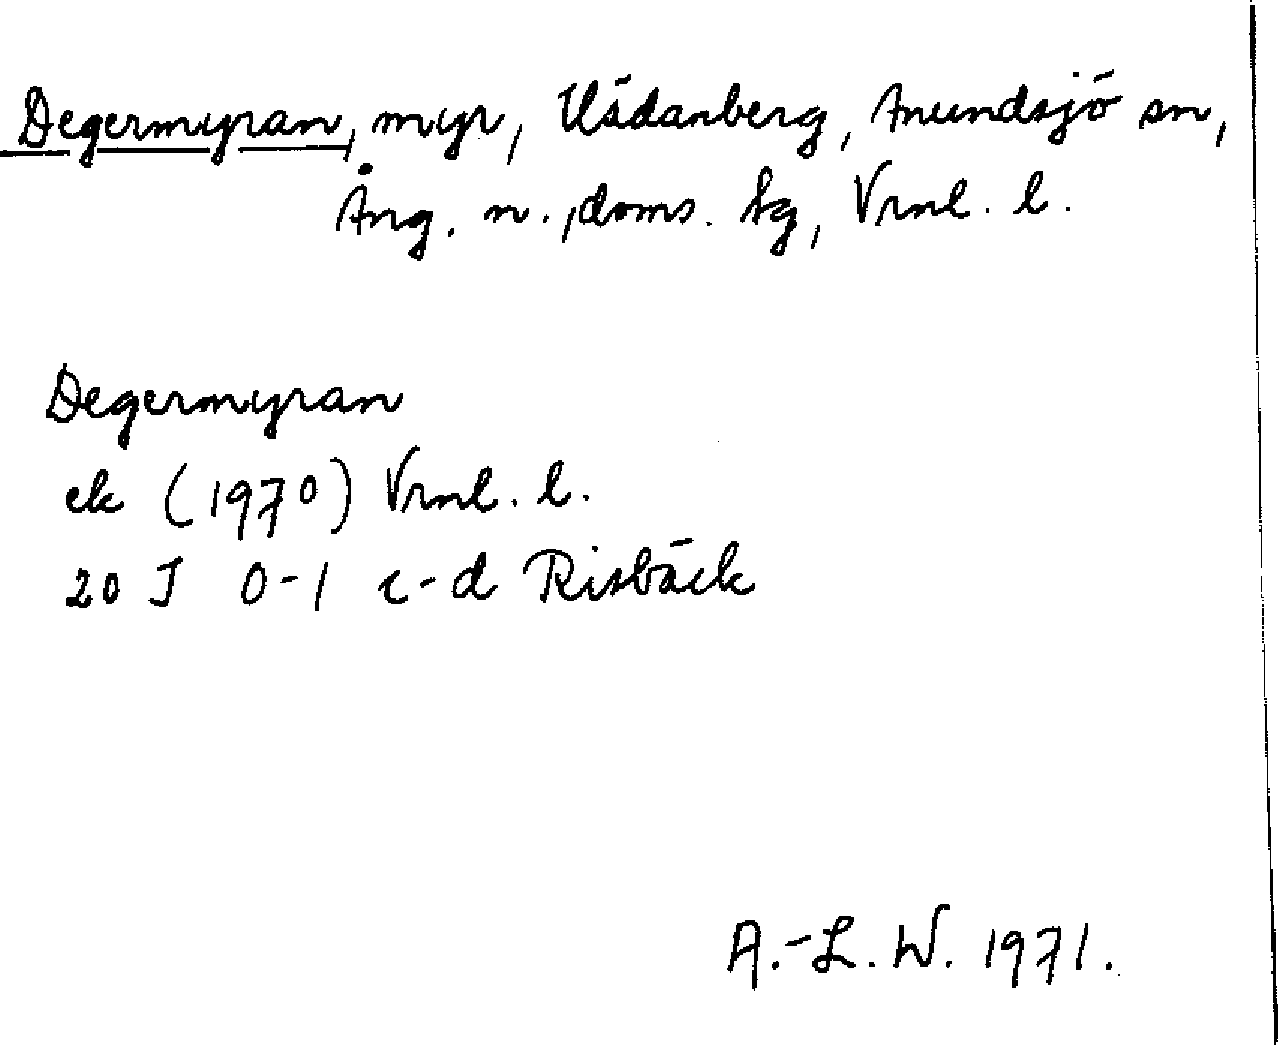 Degermyran, myr, Usädanberg, Anundsjö sn,
Ång. n., doms. tg, Vrml. l.
Degermyran
ek (1970) Vrml. l.
20 J 0-1 c-d Risbäck
A.-L. W. 1971.